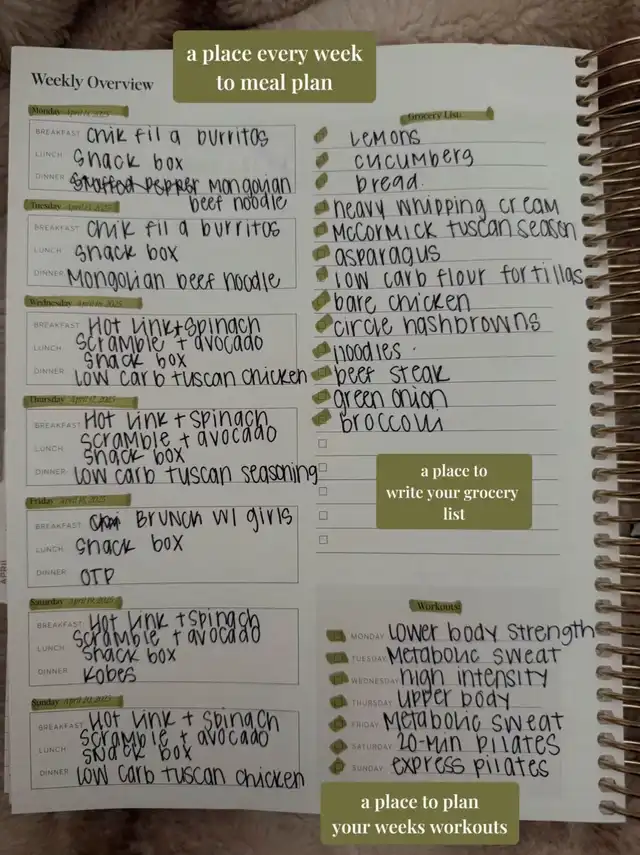 a place every week
to meal plan
Weekly Overview
Monday April 14, 2025
BREAKFAST chik fil a burritos
LUNCH snack box
DINNER stuffed pepper Mongolian
beef noodle
Tuesday April 15, 2025
BREAKFAST chik fil a burritos
LUNCH snack box
DINNER Mongolian beef noodle
Wednesday April 16, 2025
BREAKFAST Hot link + spinach
scramble + avocado
LUNCH snack box
DINNER low carb tuscan chicken
Thursday April 17, 2025
BREAKFAST Hot link + spinach
scramble + avocado
LUNCH snack box
DINNER low carb tuscan seasoning
Friday April 18, 2025
BREAKFAST BRUNCH W/ girls
LUNCH snack box
DINNER OTP
Saturday April 19, 2025
BREAKFAST Hot link + spinach
scramble + avocado
LUNCH snack box
DINNER Kobes
Sunday April 20, 2025
BREAKFAST Hot link + spinach
scramble + avocado
LUNCH snack box
DINNER low carb tuscan chicken
Grocery List:
Lemons
cucumberg
bread.
heavy whipping cream
McCormick tuscan season
asparagus
low carb flour tortillas
bare chicken
circle hashbrowns
noodles
beef steak
green onion
broccoli
a place to
write your grocery
list
Workouts:
MONDAY lower body strength
TUESDAY Metabolic sweat
WEDNESDAY high intensity
THURSDAY upper body
FRIDAY Metabolic sweat
SATURDAY 20-Min pilates
SUNDAY express pilates
a place to plan
your weeks workouts
APRIL